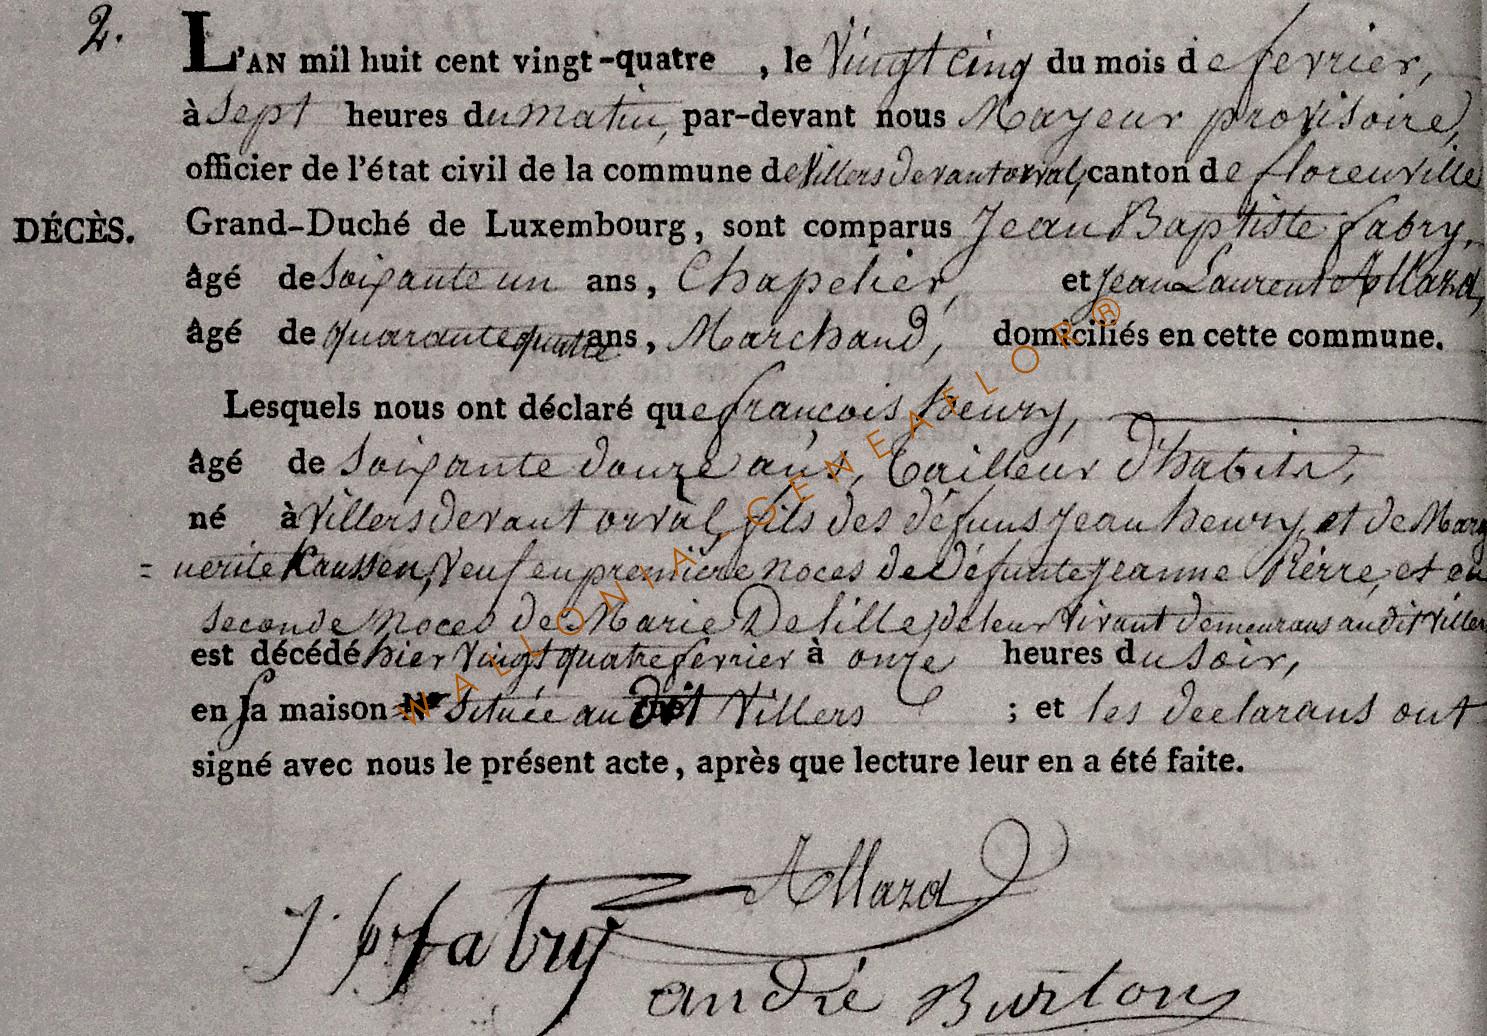 2.
L'AN mil huit cent vingt-quatre , le Vingt cinq du mois de fevrier,
à Sept heures du matin, par-devant nous Mayeur provisoire,
officier de l'état civil de la commune de Villers devant orval, canton de florenville
DÉCÈS. Grand-Duché de Luxembourg, sont comparus Jean Baptiste fabry,
âgé de Soixante un ans, Chapelier, et Jean Laurent Allard,
âgé de quarante quatre ans, Marchand, domiciliés en cette commune.
Lesquels nous ont déclaré que françois henry,
âgé de Soixante douze ans, tailleur d'habits,
né à Villers devant orval, fils des défuns Jean henry, et de Marg
= uerite Kaussen, Veuf en première noces de Défunte Jeanne Pierre, et en
seconde noces de Marie Delille, de leur Vivant demeurans au dit Villers
est décédé hier Vingt quatre fevrier à onze heures du soir,
en sa maison N° Située au dit Villers ; et les declarans ont
signé avec nous le présent acte, après que lecture leur en a été faite.
Allard
J. Bt fabry
andré Burton
WALLONIA-GENEAFLOR®